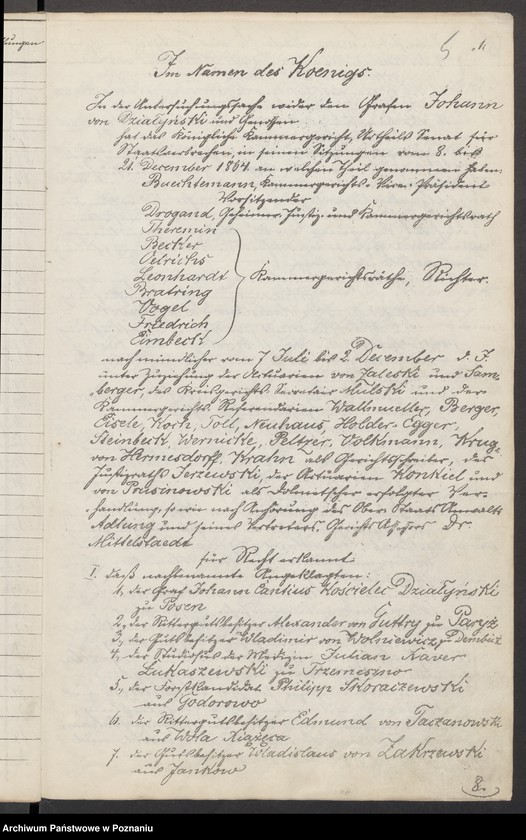 Im Namen des Koenigs.
In der Untersuchungssache wider den Grafen Johann
von Działyński und Genossen
hat das Königliche Kammergericht, Urtheils Senat für
Staatsverbrechen, in seinen Sitzungen vom 8. bis
21. December 1864 an welchen Theil genommen haben:
Buechtemann, Kammergerichts-Vice-Präsident
Vorsitzender
Drogand, Geheimer Justiz- und Kammergerichtsrath
Theremin
Becker
Oelrichs
Leonhardt
Kammergerichtsräthe, Richter.
Bratring
Vogel
Friedrich
Eimbeck
nach mündlicher vom 7 Juli bis 2. December d. J.
unter Zuziehung der Actuarien von Zaleski und Sam-
berger, des Kreisgerichts Secretair Mulski und der
Kammergerichts Referendarien Wallmueller, Berger,
Eisele, Koch, Toll, Neuhaus, Holder-Egger,
Steinbeck, Wernicke, Peltzer, Volkmann, Krug,
von Hermesdorff, Krahn als Gerichtsschreiber, des
Justizraths Jerzewski, der Actuarien Konkiel und
von Prusinowski als Dolmetscher erfolgter Ver-
handlung, so wie nach Anhörung des Ober Staats Anwalts
Adlung und seines Vertreters, Gerichts Assessors Dr.
Mittelstaedt
für Recht erkannt
I. daß nachbenannte Angeklagten:
1, der Graf Johann Cantius Kościelec Działyński
zu Posen
2, der Rittergutsbesitzer Alexander von Guttry zu Paryż
3, der Gutsbesitzer Wladimir von Wolniewicz zu Dembicz
4, der Studiosus der Medizin Julian Xaver
Łukaszewski zu Trzemeszno
5, der Forstkandidat Philipp Skoraczewski
aus Godorowo
6. der Rittergutsbesitzer Edmund von Taczanowski
aus Wola Xiążęca
7. der Gutsbesitzer Wladislaus von Zakrzewski
aus Jankow
8.
Archiwum Państwowe w Poznaniu